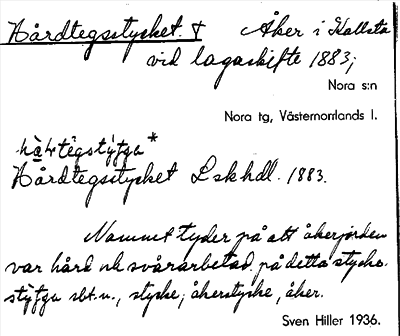 Hårdtegsstycket. † Åker i Hallsta
vid lagaskifte 1883;
Nora s:n
Nora tg, Västernorrlands l.
Hårdtegsstycket Lskhdl. 1883.
Namnet tyder på att åkerjorden
var hård och svårarbetad på detta stycke.
sbt. n., stycke; åkerstycke, åker.
Sven Hiller 1936.